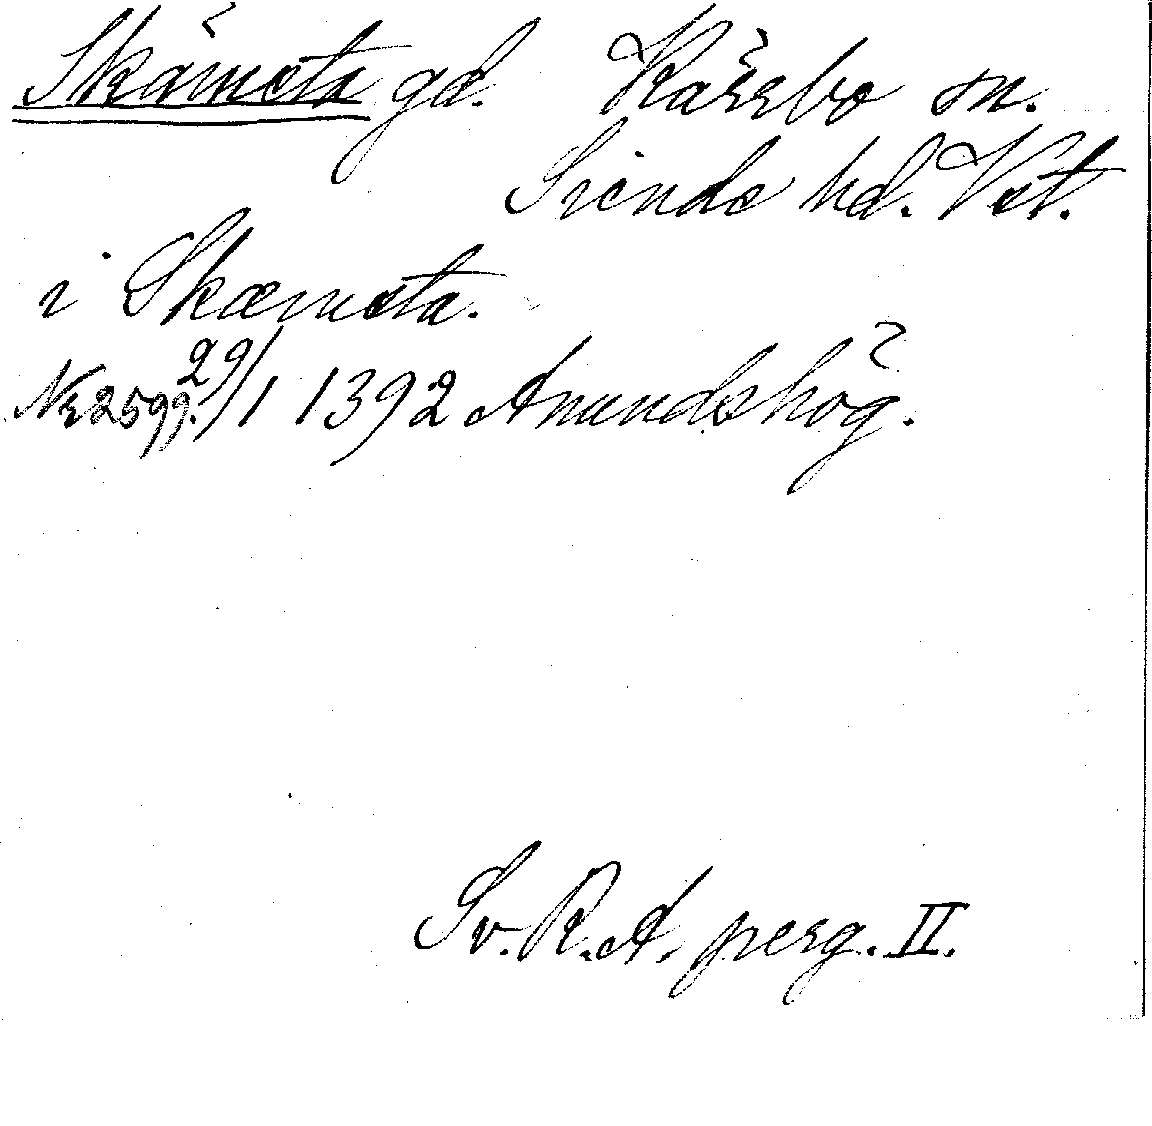 Skämsta gd. Kärrbo sn.
Siende hd. Vst.
i Skæmsta.
Nr 2599. 29/1 1392 Anundshög.
Sv. R. A. perg. II.